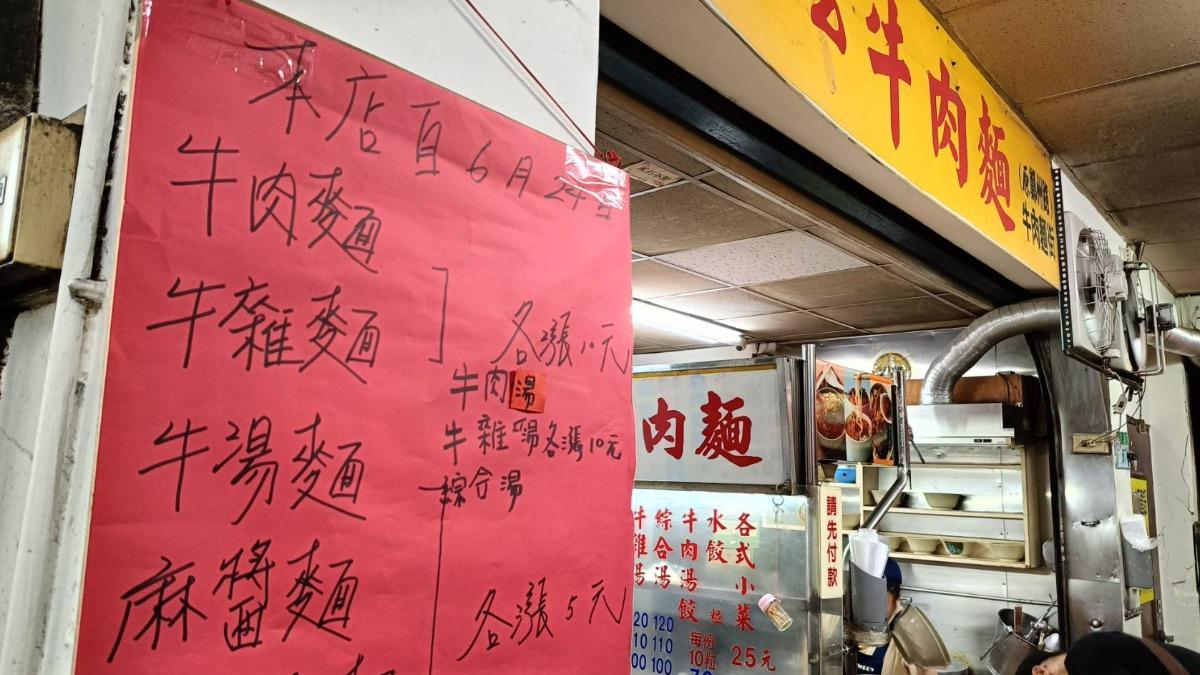 本店自6月24日
牛肉麵
牛雜麵
各漲10元
牛肉湯
牛雜湯各漲10元
綜合湯
牛湯麵
麻醬麵
各漲5元
牛肉麵
牛肉麵
肉麵
請先付款
各式小菜
25元
水餃
粒
每份
10粒
牛肉湯餃
綜合湯
牛雜湯
20 120
10 110
00 100